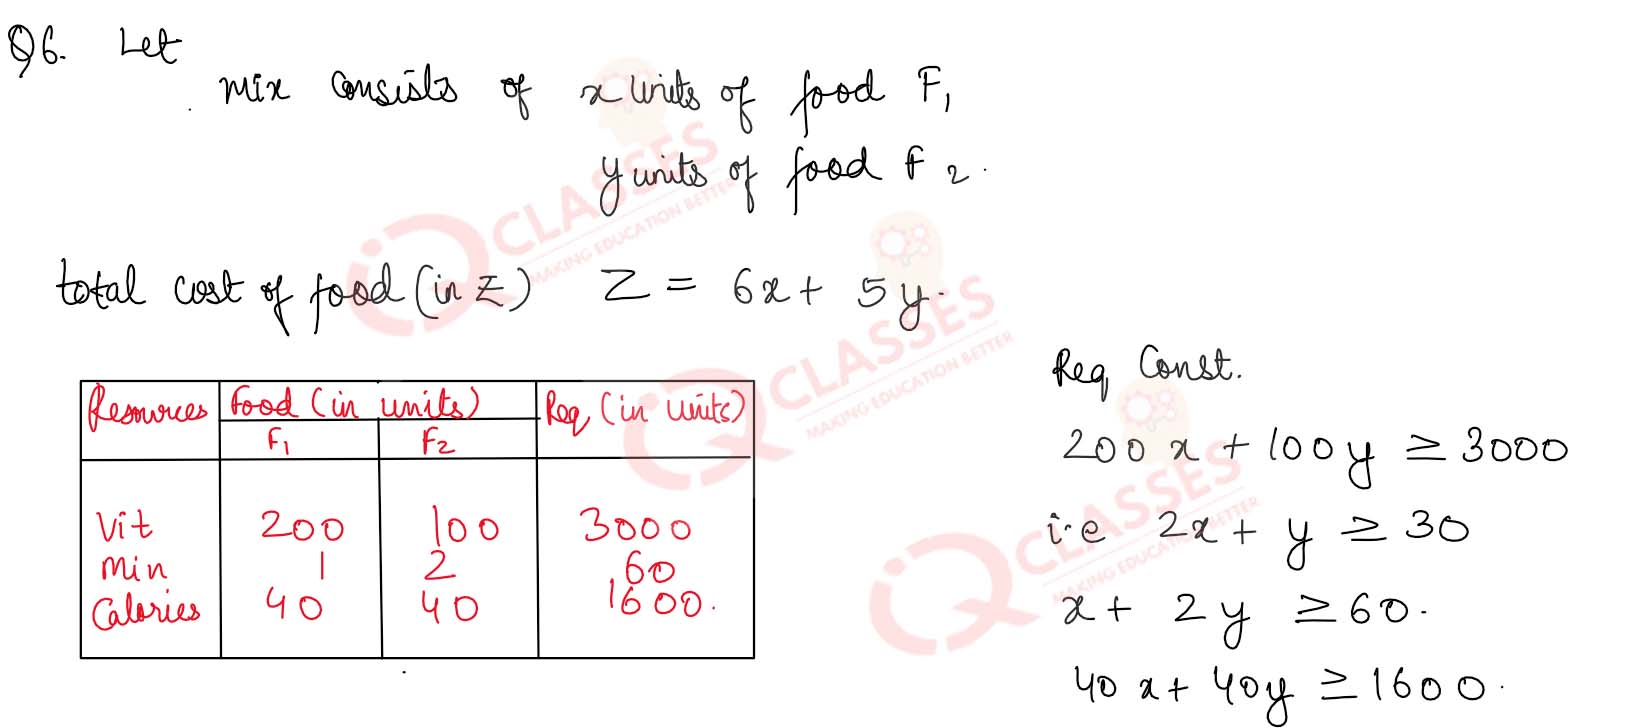 Q6. Let
mix consists of x units of food F₁
y units of food F₂.
total cost of food (in Z) Z = 6x + 5y.
Resources Food (in units) Req (in units)
F₁ F₂
Vit 200 100 3000
Min 1 2 60
Calories 40 40 1600.
Req Const.
200x + 100y ≥ 3000
i.e 2x + y ≥ 30
x + 2y ≥ 60.
40x + 40y ≥ 1600.
iQ CLASSES
MAKING EDUCATION BETTER
iQ CLASSES
MAKING EDUCATION BETTER
iQ CLASSES
MAKING EDUCATION BETTER